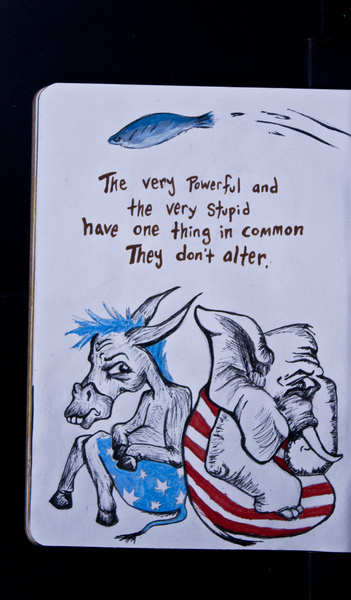 The very Powerful and
the very Stupid
have one thing in common
They don't alter.